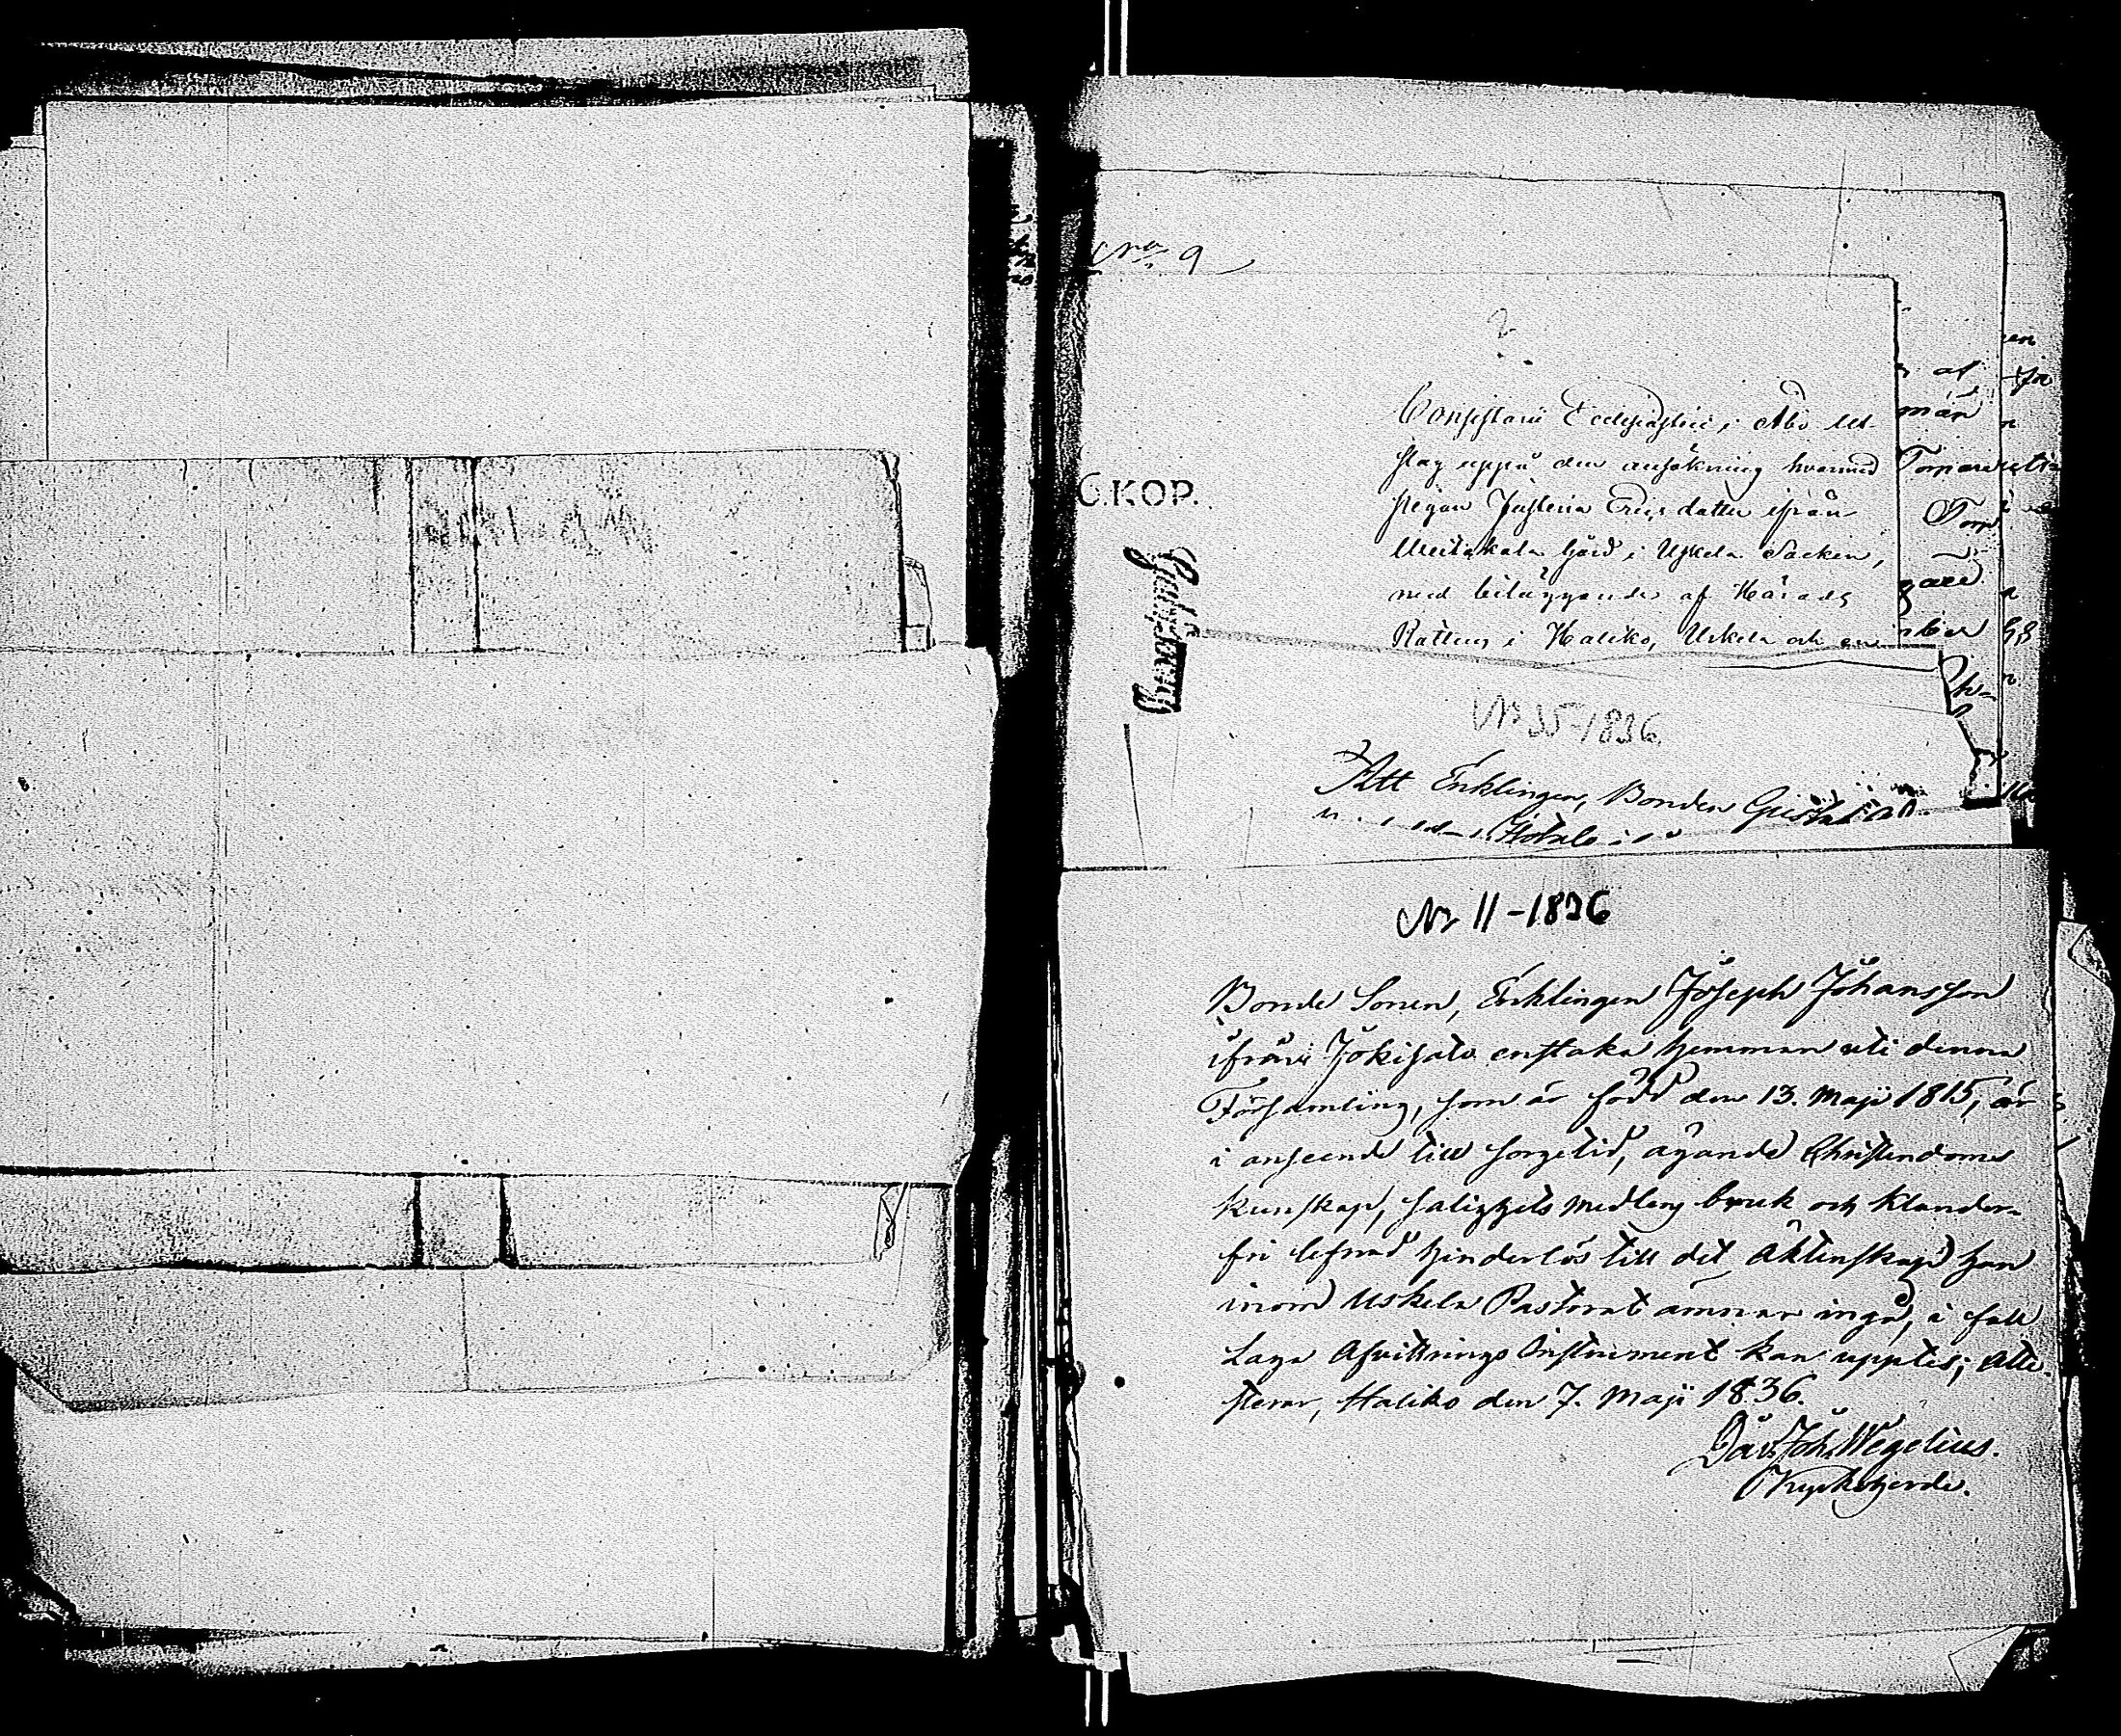 No 9
Consistorii Ecclesiastici i Åbo Ut-
slag uppå den ansökning hvarmed
pigan Justina Ericsdotter ifrån
gård i Uskela Socken,
med biläggande af Härads
Rättens i Haliko, Uskela och en
C.KOP.
No 35-1836.
Att Enklingen, Bonden Gustaf
No 11-1836
Bonde Sonen, Enklingen Joseph Johansson
ifrån Jokisalo enstaka hemman uti denna
Församling, som är född den 13. Maji 1815, är
i anseende till sorgetid, ägande Christendoms
kunskap, salighets medlens bruk och klander-
fri lefnad hinderlös till det Äktenskap han
inom Uskela Pastorat ämnar ingå, i fall
Laga Afvittrings Instrument kan upptes; atte-
sterar, Haliko den 7. Maji 1836.
Dav. Joh. Wegelius.
Kyrkoherde.